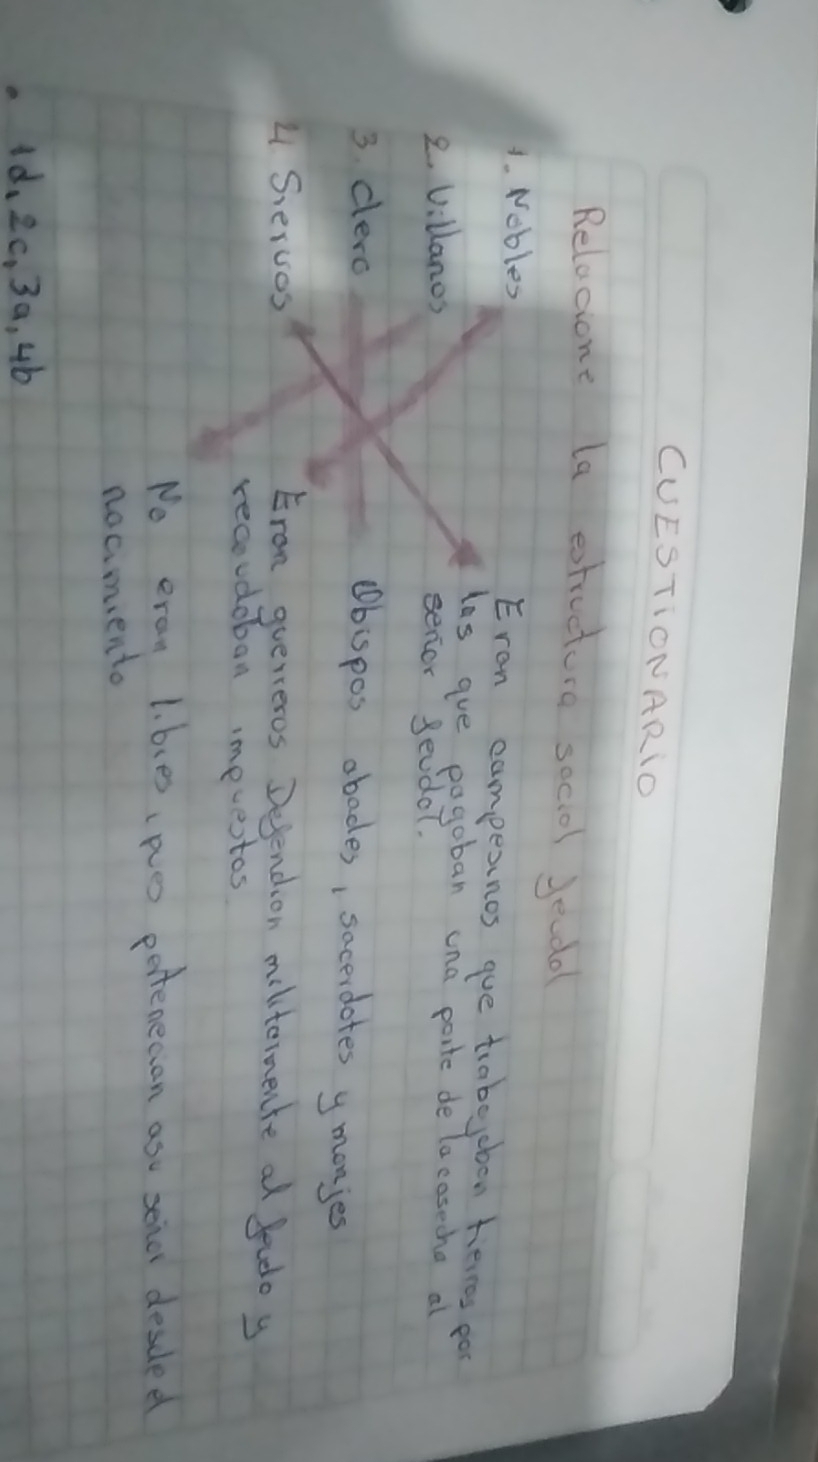 CUESTIONARIO
Relacione la estructura social feudal
1. Nobles
2. Villanos
3. clero
4 Siervos
Eran campesinos que trabajaban tierras por
las que pagaban una parte de la cosecha al
señor feudal.
Obispos abades, sacerdotes y monjes
Eran guerreros Defendian militarmente al feudo y
recaudaban impuestos
No eran libres, pues pertenecian asu señor desde el
nacimiento
• 1d, 2c, 3a, 4b